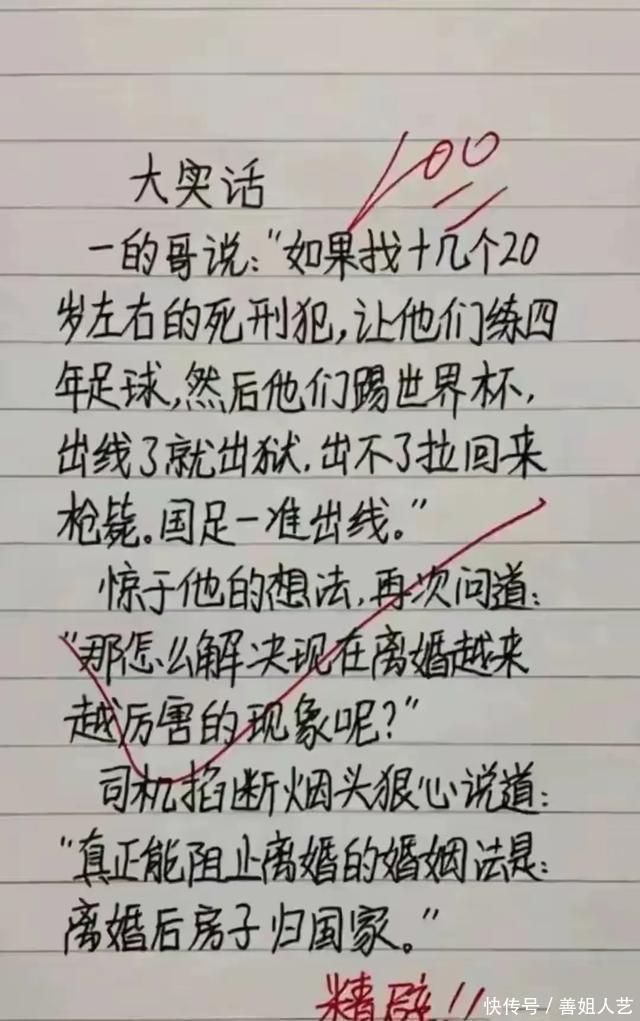 大实话
100
一的哥说:“如果找十几个20
岁左右的死刑犯,让他们练四
年足球,然后他们踢世界杯,
出线了就出狱.出不了拉回来
枪毙。国足一准出线。”
惊于他的想法,再次问道:
“那怎么解决现在离婚越来
越厉害的现象呢?”
司机掐断烟头狠心说道:
“真正能阻止离婚的婚姻法是:
离婚后房子归国家。”
精辟!!
快传号/善姐人艺